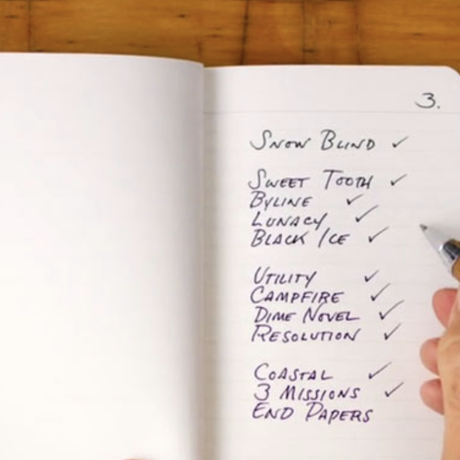 3.
SNOW BLIND ✓
SWEET TOOTH ✓
BYLINE ✓
LUNACY ✓
BLACK ICE ✓
UTILITY ✓
CAMPFIRE ✓
DIME NOVEL ✓
RESOLUTION ✓
COASTAL ✓
3 MISSIONS ✓
END PAPERS